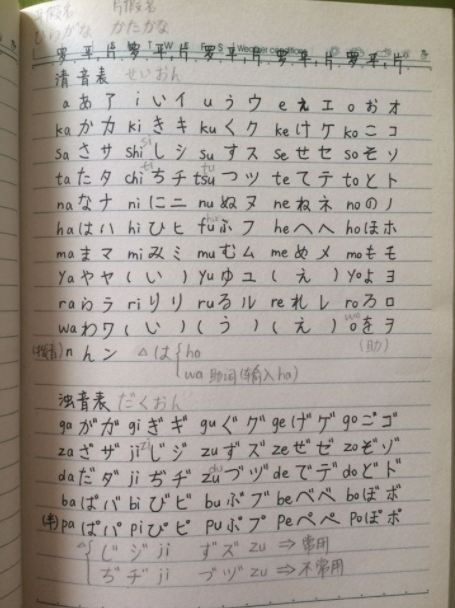 平假名 片假名
ひらがな かたかな
罗,平,片 T W 罗,平,片 F S Weather conditions 罗,平,片 罗,平,片
清音表 せいおん
a あ ア i い イ u う ウ e え エ o お オ
ka か カ ki き キ ku く ク ke け ケ ko こ コ
sa さ サ shi si し シ su す ス se せ セ so そ ソ
ta た タ chi ti ち チ tsu tu つ ツ te て テ to と ト
na な ナ ni に ニ nu ぬ ヌ ne ね ネ no の ノ
ha は ハ hi ひ ヒ fu hu ふ フ he へ ヘ ho ほ ホ
ma ま マ mi み ミ mu む ム me め メ mo も モ
ya や ヤ ( い ) yu ゆ ユ ( え ) yo よ ヨ
ra ら ラ ri り リ ru る ル re れ レ ro ろ ロ
wa わ ワ ( い ) ( う ) ( え ) o wo を ヲ
(拨音) n ん ン △ は { ha (助)
wa 助词(输入ha)
浊音表 だくおん
ga が ガ gi ぎ ギ gu ぐ グ ge げ ゲ go ご ゴ
za ざ ザ ji zi じ ジ zu ず ズ ze ぜ ゼ zo ぞ ゾ
da だ ダ ji ぢ ヂ zu du づ ヅ de で デ do ど ド
ba ば バ bi び ビ bu ぶ ブ be べ ベ bo ぼ ボ
(半) pa ぱ パ pi ぴ ピ pu ぷ プ pe ぺ ペ po ぽ ポ
△ { じ ジ ji ず ズ zu ⇒ 常用
ぢ ヂ ji づ ヅ zu ⇒ 不常用